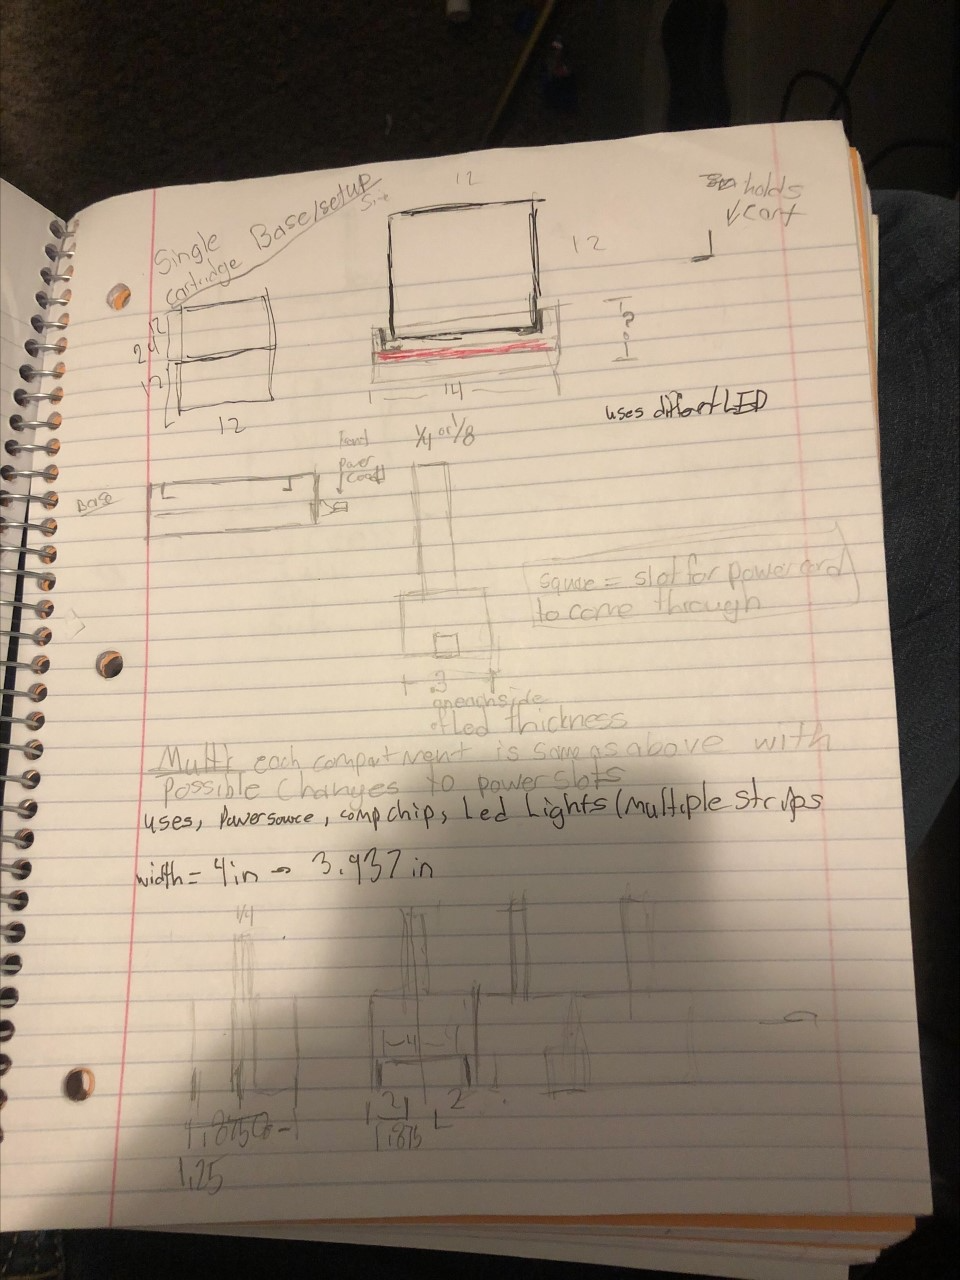 12
Single Base/setup
cartridge
holds
cart
12
12
24
12
12
14
uses differt LED
1/4 or 1/8
power
Base
square = slot for power cord
to come through
3
on each side
of led thickness
Multi each compartment is same as above with
Possible Changes to power slots
uses, Power source, comp chip, Led Lights (Multiple strips
width = 4in - 3.937 in
1/4
4
2
2
1.875
1.25